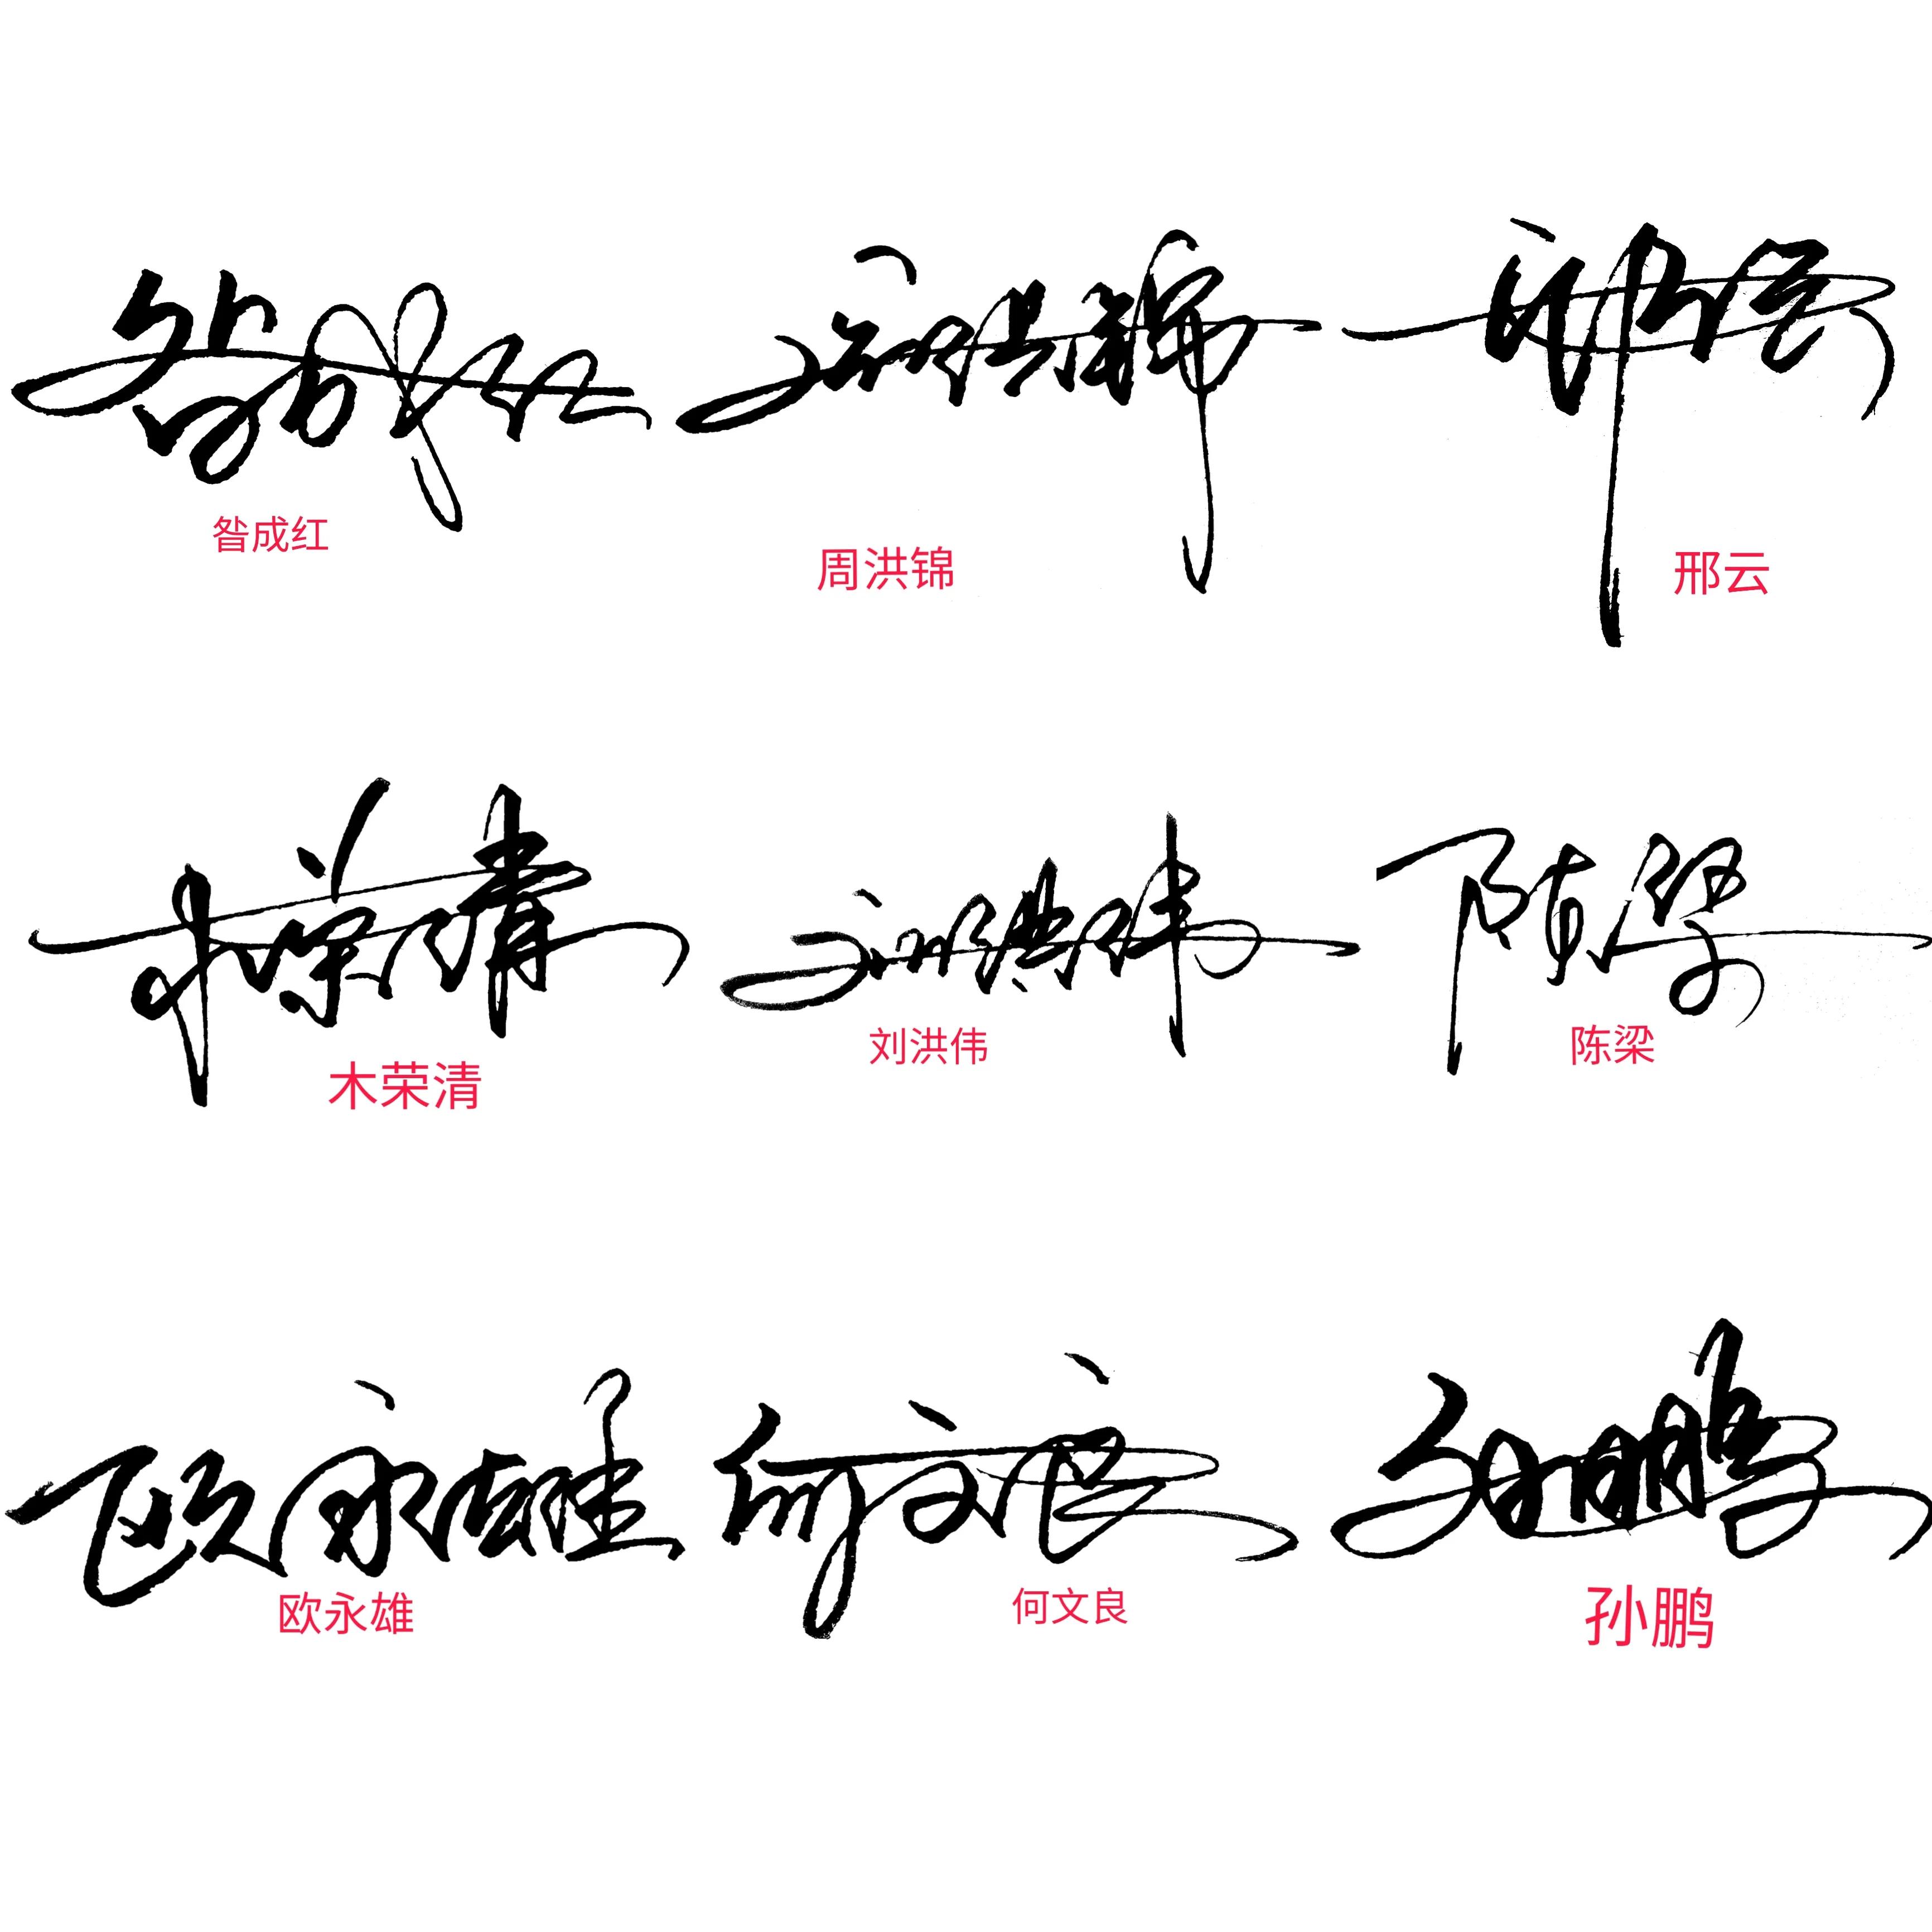 昝成红
周洪锦
邢云
木荣清
刘洪伟
陈梁
欧永雄
何文良
孙鹏